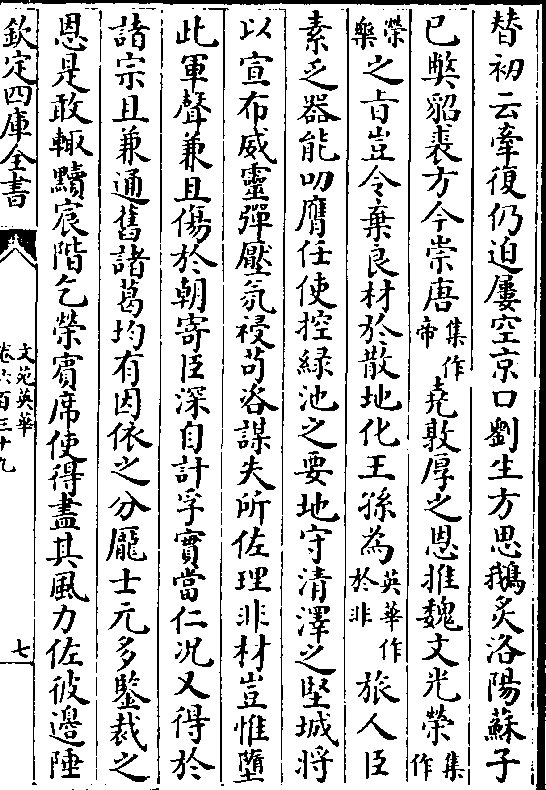 替初云牽復仍迫屢空京口劉生方思鵝炙洛陽蘇子
已弊貂裘方今崇唐集作帝堯敦厚之恩推魏文光榮集作
榮樂之旨豈令棄良材於散地化王孫為英華作於非旅人臣
素乏器能叨膺任使控緑池之要地守清澤之堅城將
以宣布威靈彈壓氛祲苟洛謀失所佐理非材豈惟墮
此軍聲兼且傷於朝寄臣深自計孚實當仁况又得於
諸宗且兼通舊諸葛均有因依之分龎士元多鑒裁之
恩是敢輙黷宸階乞榮賓席使得盡其風力佐彼邊陲
欽定四庫全書
文苑英華
卷六百三十九
七